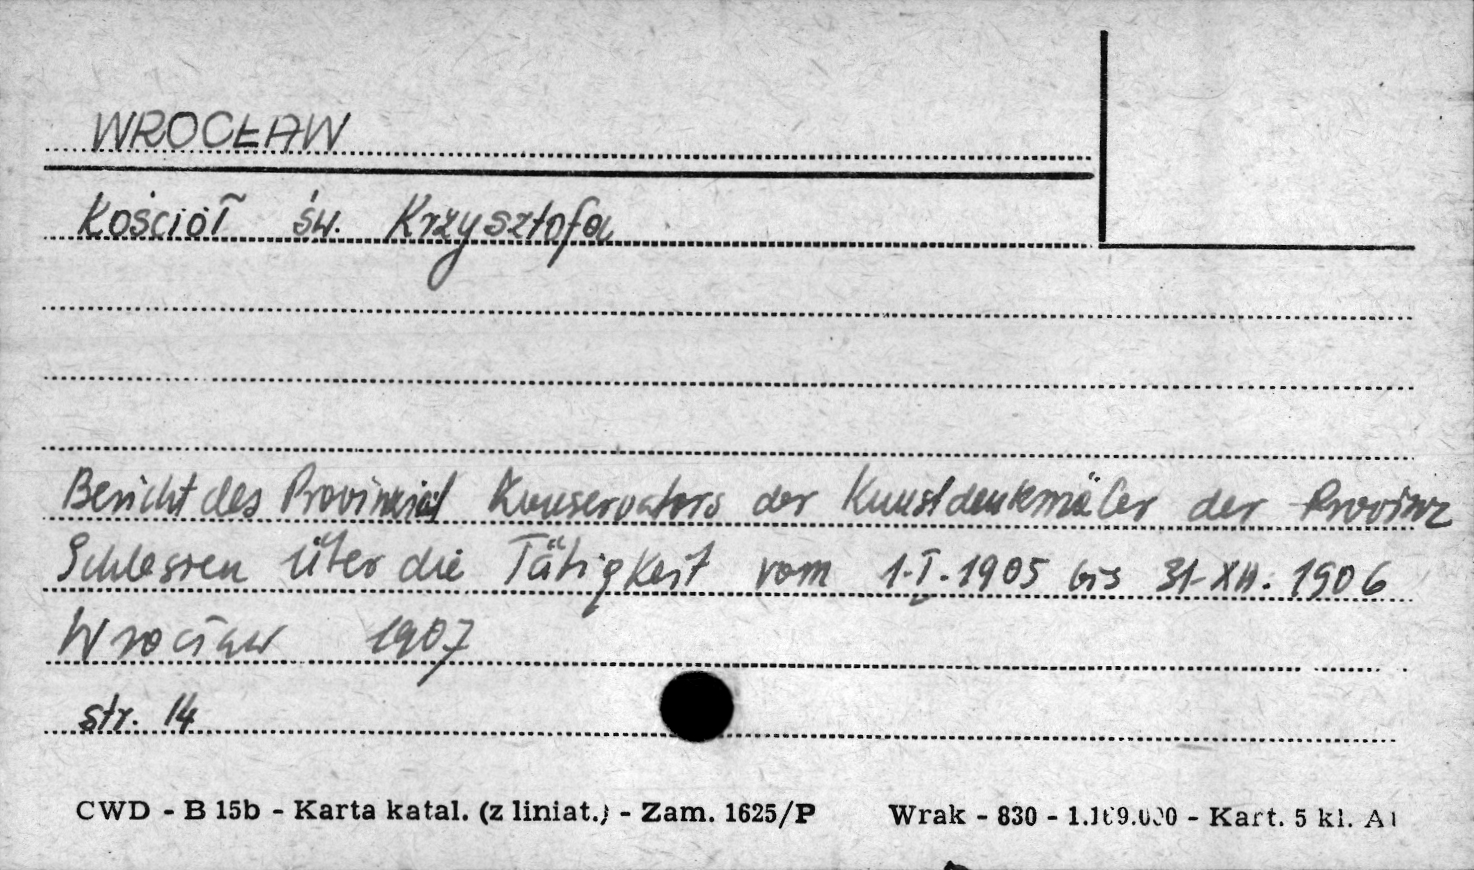 WROCŁAW
Kościół św. Krzysztofa
Bericht des Provinzial Konservators der Kunstdenkmäler der Provinz
Schlesien über die Tätigkeit vom 1.I.1905 bis 31.XII.1906
Wrocław 1907
str. 14
CWD - B 15b - Karta katal. (z liniat.) - Zam. 1625/P Wrak - 830 - - Kart. 5 kl.